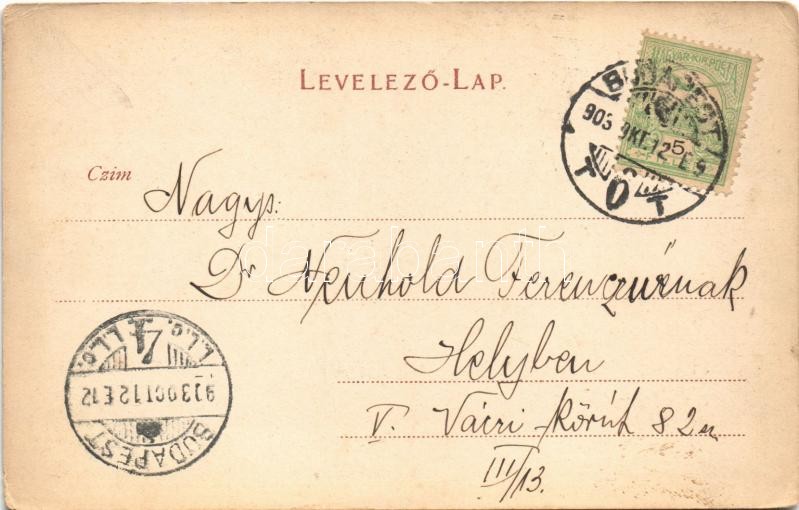 LEVELEZŐ-LAP.
MAGYAR·KIR·POSTA
5
BUDAPEST
903 OKT. 12 E 9
TÖT
Czim
Nagys:
Dr Neuhold Ferenczűrnak
Helyben
V. Váczi-körút 82a
III/13.
BUDAPEST
903 OCT 12 E 12
4
darabanth